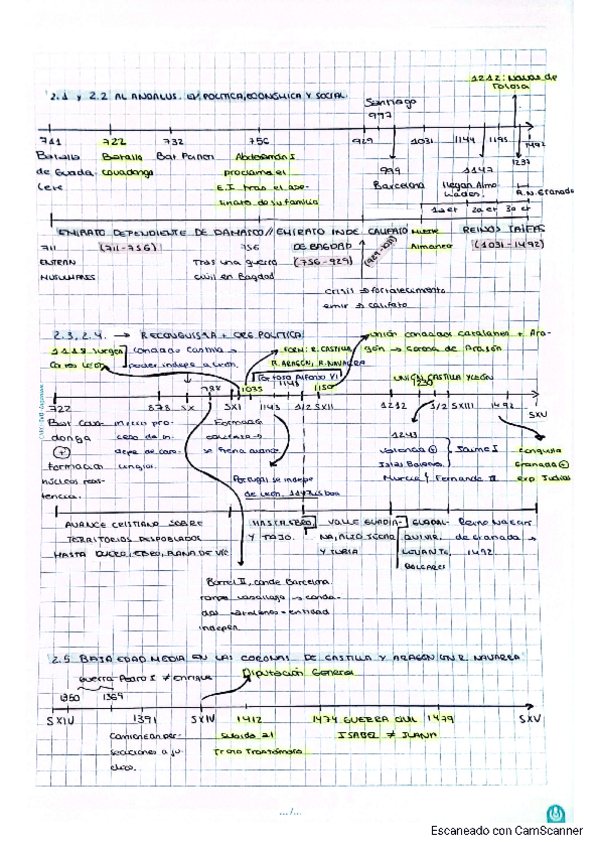 1212: Navas de
Tolosa
2.1 y 2.2 AL ANDALUS. EV. POLITICA, ECONOMICA Y SOCIAL.
Santiago
997
711 722 732 756 929 1031 1144 1195 1492
1237
Batalla Batalla Bat Abderramán I 999 1147
de Guada covadonga proclama el Barcelona llegan Almo
lete E.I tras el ase- hades. R.N. Granada
sinato de su familia 1a et 2a et 3a et
EMIRATO DEPENDIENTE DE DAMASCO // EMIRATO INDE CALIFATO MUERTE REINOS TAIFAS
711 (711-756) 756 DE BAGDAD (929-1031) Almanzor (1031-1492)
ENTRAN Tras una guerra (756-929)
MUSULMANES civil en Bagdad
crisis → fortalecimiento
emir → califato
2.3, 2.4. → RECONQUISTA + ORG POLITICA
unión condados catalanes + Ara-
1118 surgen Condado Castilla FORM: R. CASTILLA gón → corona de Aragón
Cortes León poder indep a León. R. ARAGÓN, R. NAVARRA
Alfonso VI
1148
UNIÓN CASTILLA Y LEÓN
1230
988 1035 1150
722 878 SX SXI 1143 1/2 SXII 1212 1/2 SXIII 1492 SXV
Bat Cova- inicio pro- Formada 1243
donga ceso de in- valencia Jaume I conquista
+ depe de caro- se frena avance Islas Baleares Granada +
formación lingios. Murcia Fernando III exp Judios
núcleos resis- Portugal se indepe
tencia. de León. 1147 Lisboa
AVANCE CRISTIANO SOBRE HASTA EBRO VALLE GUADIA- GUADAL- Reino Nascar
TERRITORIOS DESPOBLADOS Y TAJO. NA, ALTO JÚCAR QUIVIR, de Granada →
HASTA DUERO, EBRO, PLANA DE VIC Y TURIA LEVANTE, 1492
BALEARES
Borrell II, conde Barcelona.
rompe vasallaje → conda-
dos catalanes = entidad
indepen
2.5 BAJA EDAD MEDIA EN LAS CORONAS DE CASTILLA Y ARAGÓN Y N R. NAVARRA
Guerra Pedro I ≠ Enrique Diputación General
1350 1369
SXIV 1391 SXIV 1412 1474 GUERRA CIVIL 1479 SXV
Comienzan per- Subida al ISABEL ≠ JUANA
secuciones a ju- Trono Trastámara
díos.
.../...
Escaneado con CamScanner